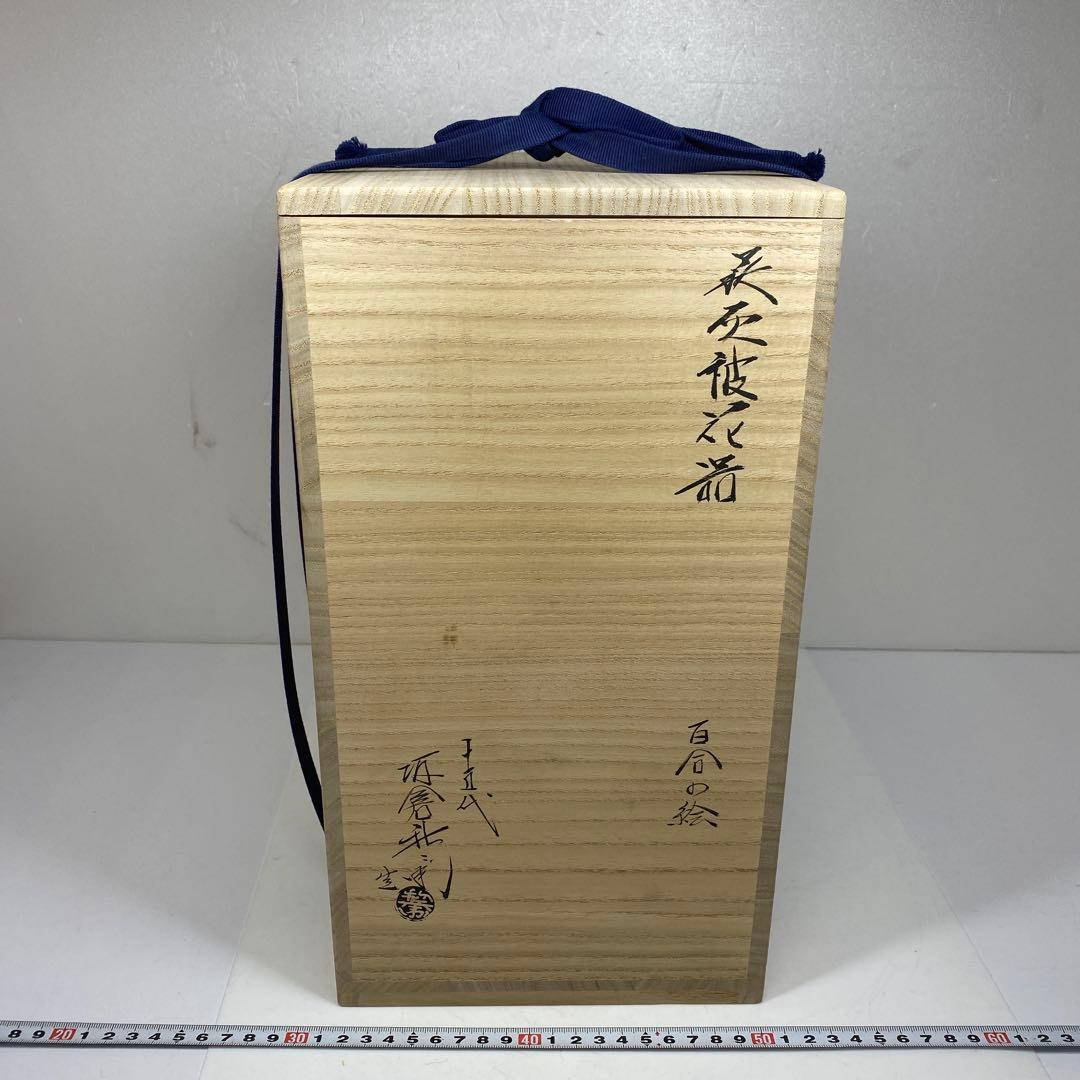 萩灰被花器
百合の絵
十五代
坂倉新兵衛
造
8 9 20 1 2 3 4 5 6 7 8 9 30 1 2 3 4 5 6 7 8 9 40 1 2 3 4 5 6 7 8 9 50 1 2 3 4 5 6 7 8 9 60 1 2 3